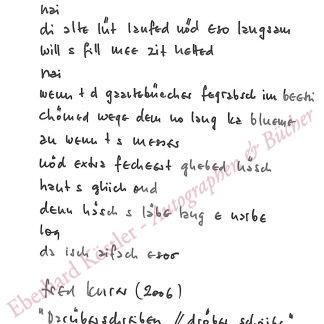 nai
di alte lüt laufed nöd eso langsam
will s fill mee zit hetted
nai
wenn t d gaartebüecher fegrabsch im beetli
chömed wege dem no lang ka blueme
au wenn t s messer
nöd extra fecheert ghebed häsch
haut s gliich und
denn häsch s läbe lang e narbe
log
da isch aifach esoo
fred kurer (2006)
"Darüberschreiben // drüber schriibe"
Eberhard Köstler - Autographen & Bücher